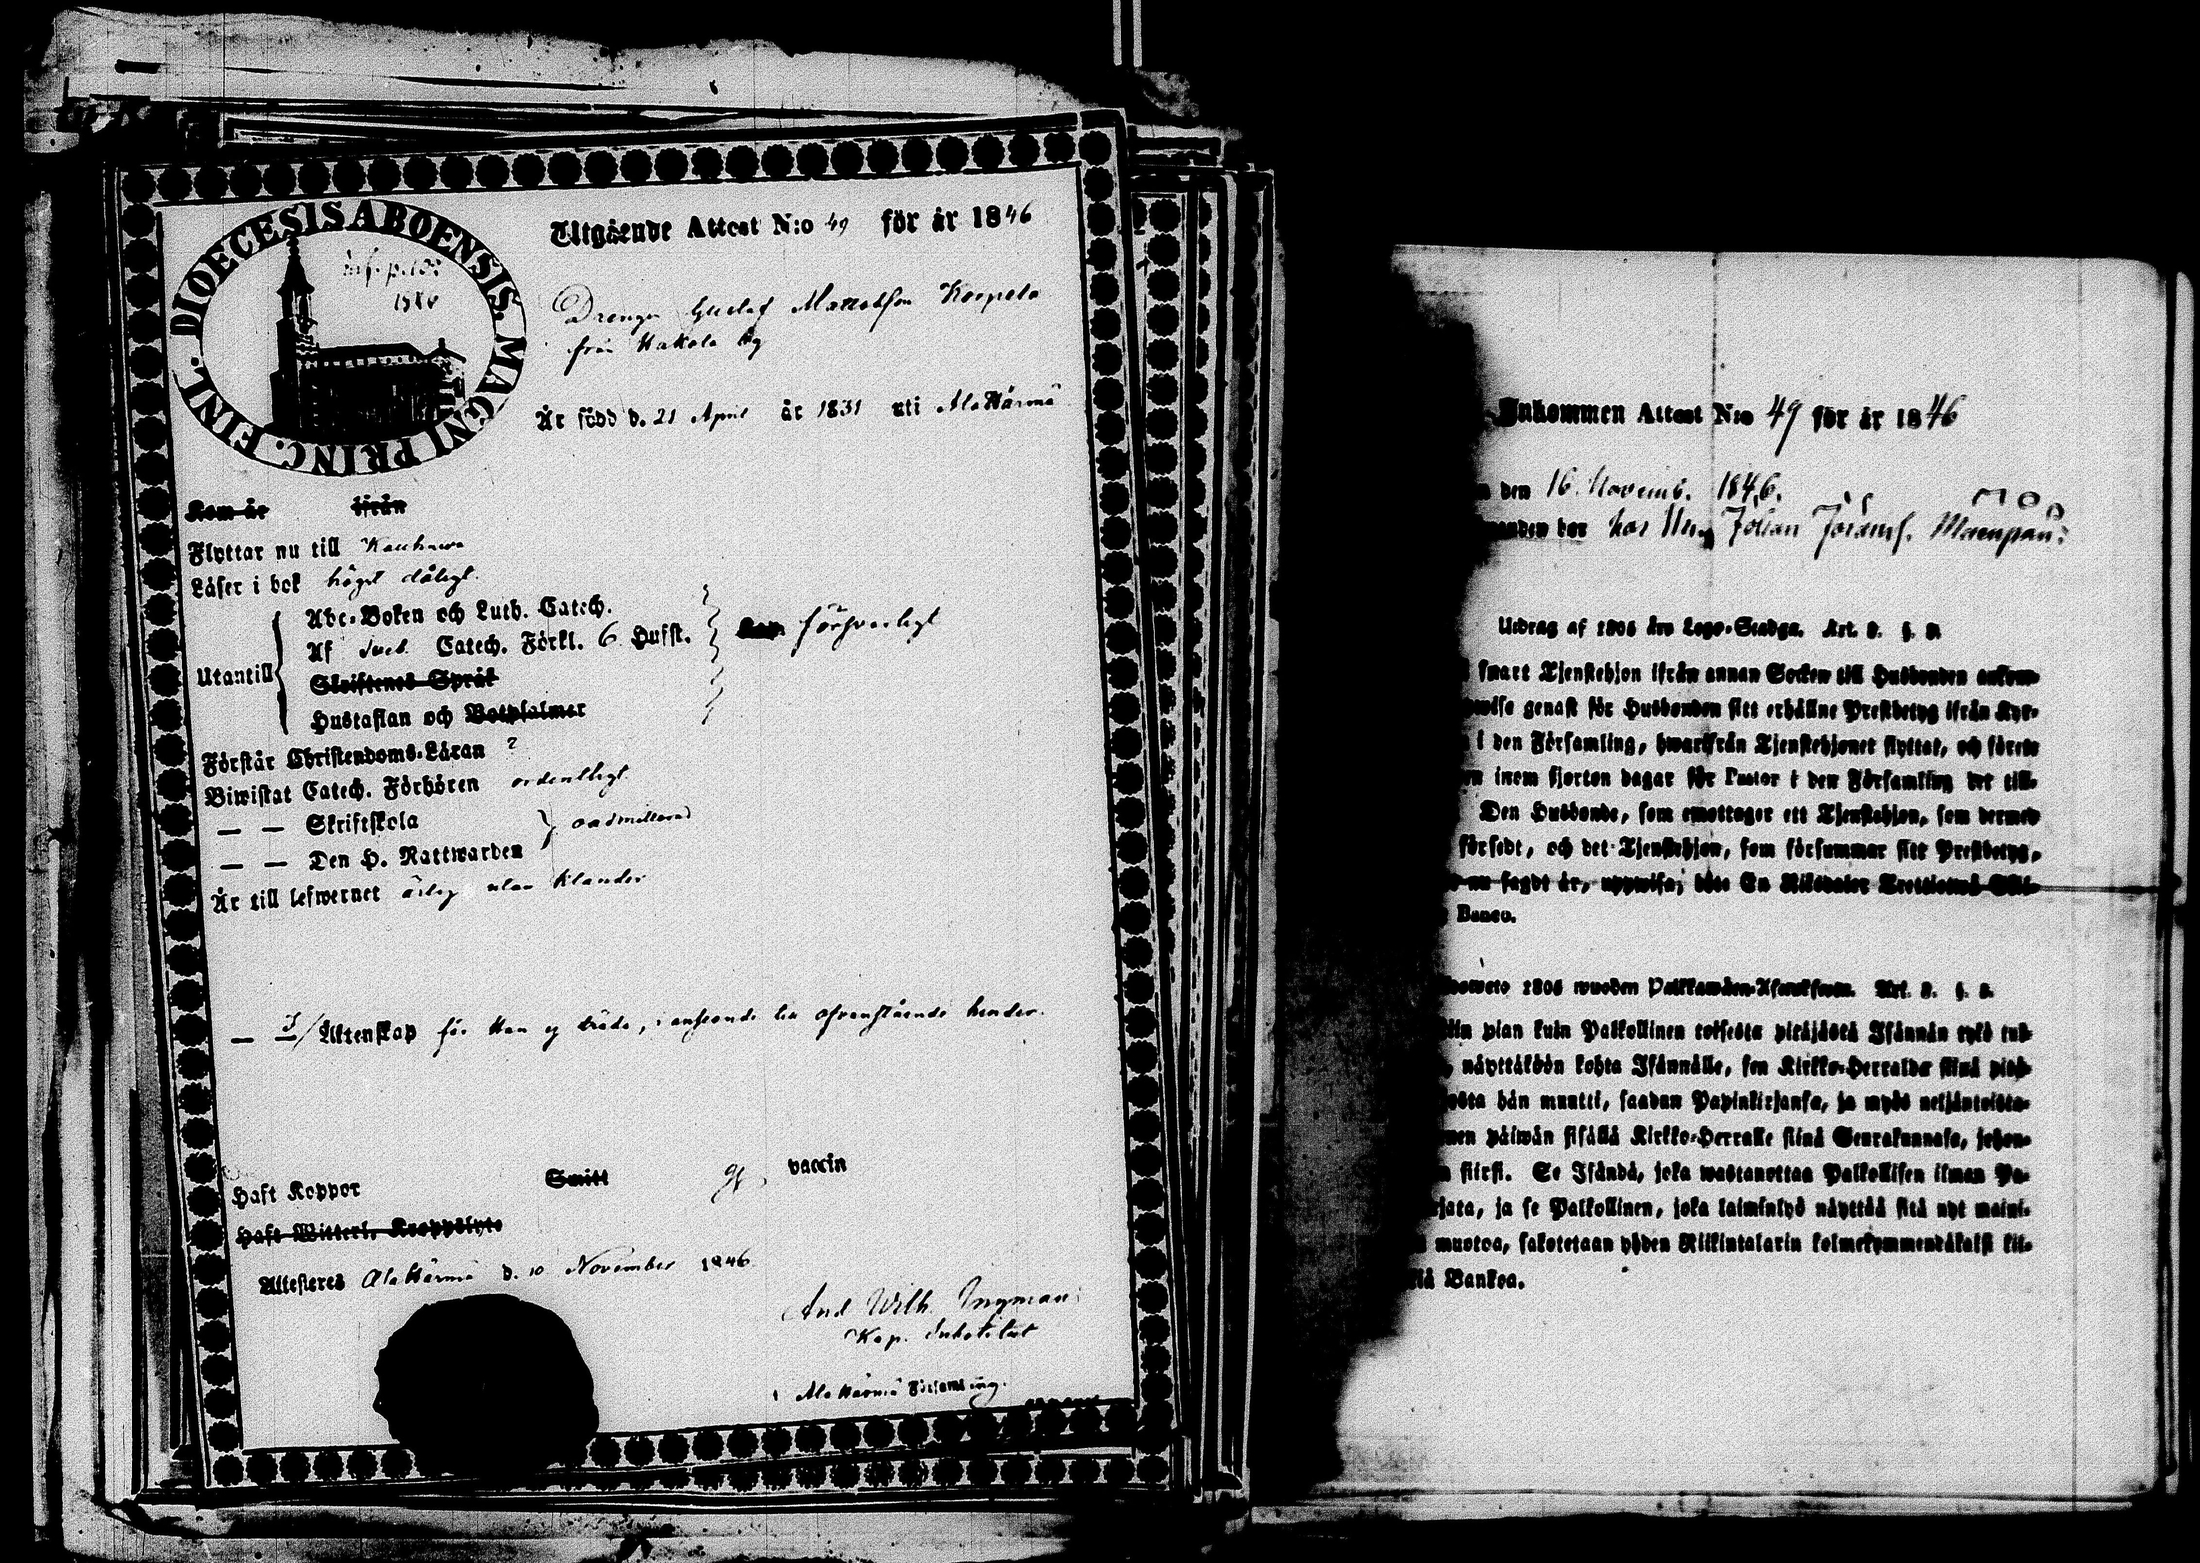 DIOECESIS ABOENSIS. MAGNI PRINC. FINL.
inf. p. 102
1846
Utgående Attest N:o 49 för år 1846
Drengen Gustaf Mattsson Korpela
från Hakola by
Är född d. 21 April år 1831 uti Ala Härmä
Kom år ifrån
Flyttar nu till Kauhava
Läser i bok högst dåligt.
Utantill
Abc-Boken och Luth. Catech.
Af Sveb. Catech. Förkl. 6 Hufst.
försvarligt
Skriftenes Språk
Hustaflan och Botpsalmer
Förstår Christendoms-Läran ?
Biwistat Catech. Förhören ordentligt
— — Skriftskola
oadmitterad
— — Den H. Nattwarden
Är till lefwernet ärlig utan klander
— I/Äktenskap får han ej träda, i anseende till ofvanstående hinder.
Haft Koppor Smitt gl. vaccin
Haft Witterl. Knappslyte
Attesteres Ala Härmä d. 10 November 1846
And Wilh Ingman
Kap. Substitut
i Ala Härmä Församling.
Inkommen Attest N:o 49 för år 1846
den 16. Novemb. 1846.
hos Johan
Utdrag af 1805 års Lego-Stadga. Art. §.
swart Tjenstehjon ifrån annan Socken till Husbonden ankom-
genast för Husbonden sitt erhållne Prestbetyg ifrån Kyr-
i den Församling, hwarifrån Tjenstehjonet flyttat, och förete
inem fjorton dagar för Pastor i den Församling det till-
Den Husbonde, som emottager ett Tjenstehjon, som dermed
försedt, och det Tjenstehjon, som försummar sitt Prestbetyg,
nu sagdt är, uppwisa, böte En Riksdaler Trettiotwå Skil-
Banco.
1805 wuoden Palkkawäen-Asetuksesta. Art. §.
pian kuin Palkollinen toisesta pitäjästä Isännän tykö tul-
näyttäköön kohta Isännälle, sen Kirkko-Herralda siinä pitä-
hän muutti, saadun Papinkirjansa, ja myös neljäntoista-
päiwän sisällä Kirkko-Herralle siinä Seurakunnasa, johon-
siirsi. Se Isändä, joka wastanottaa Palkollisen ilman Pa-
ja se Palkollinen, joka laiminlyö näyttää sitä nyt maini-
muotoa, sakotetaan yhden Riikintalarin kolmekymmendäkaksi kil-
Bankoa.